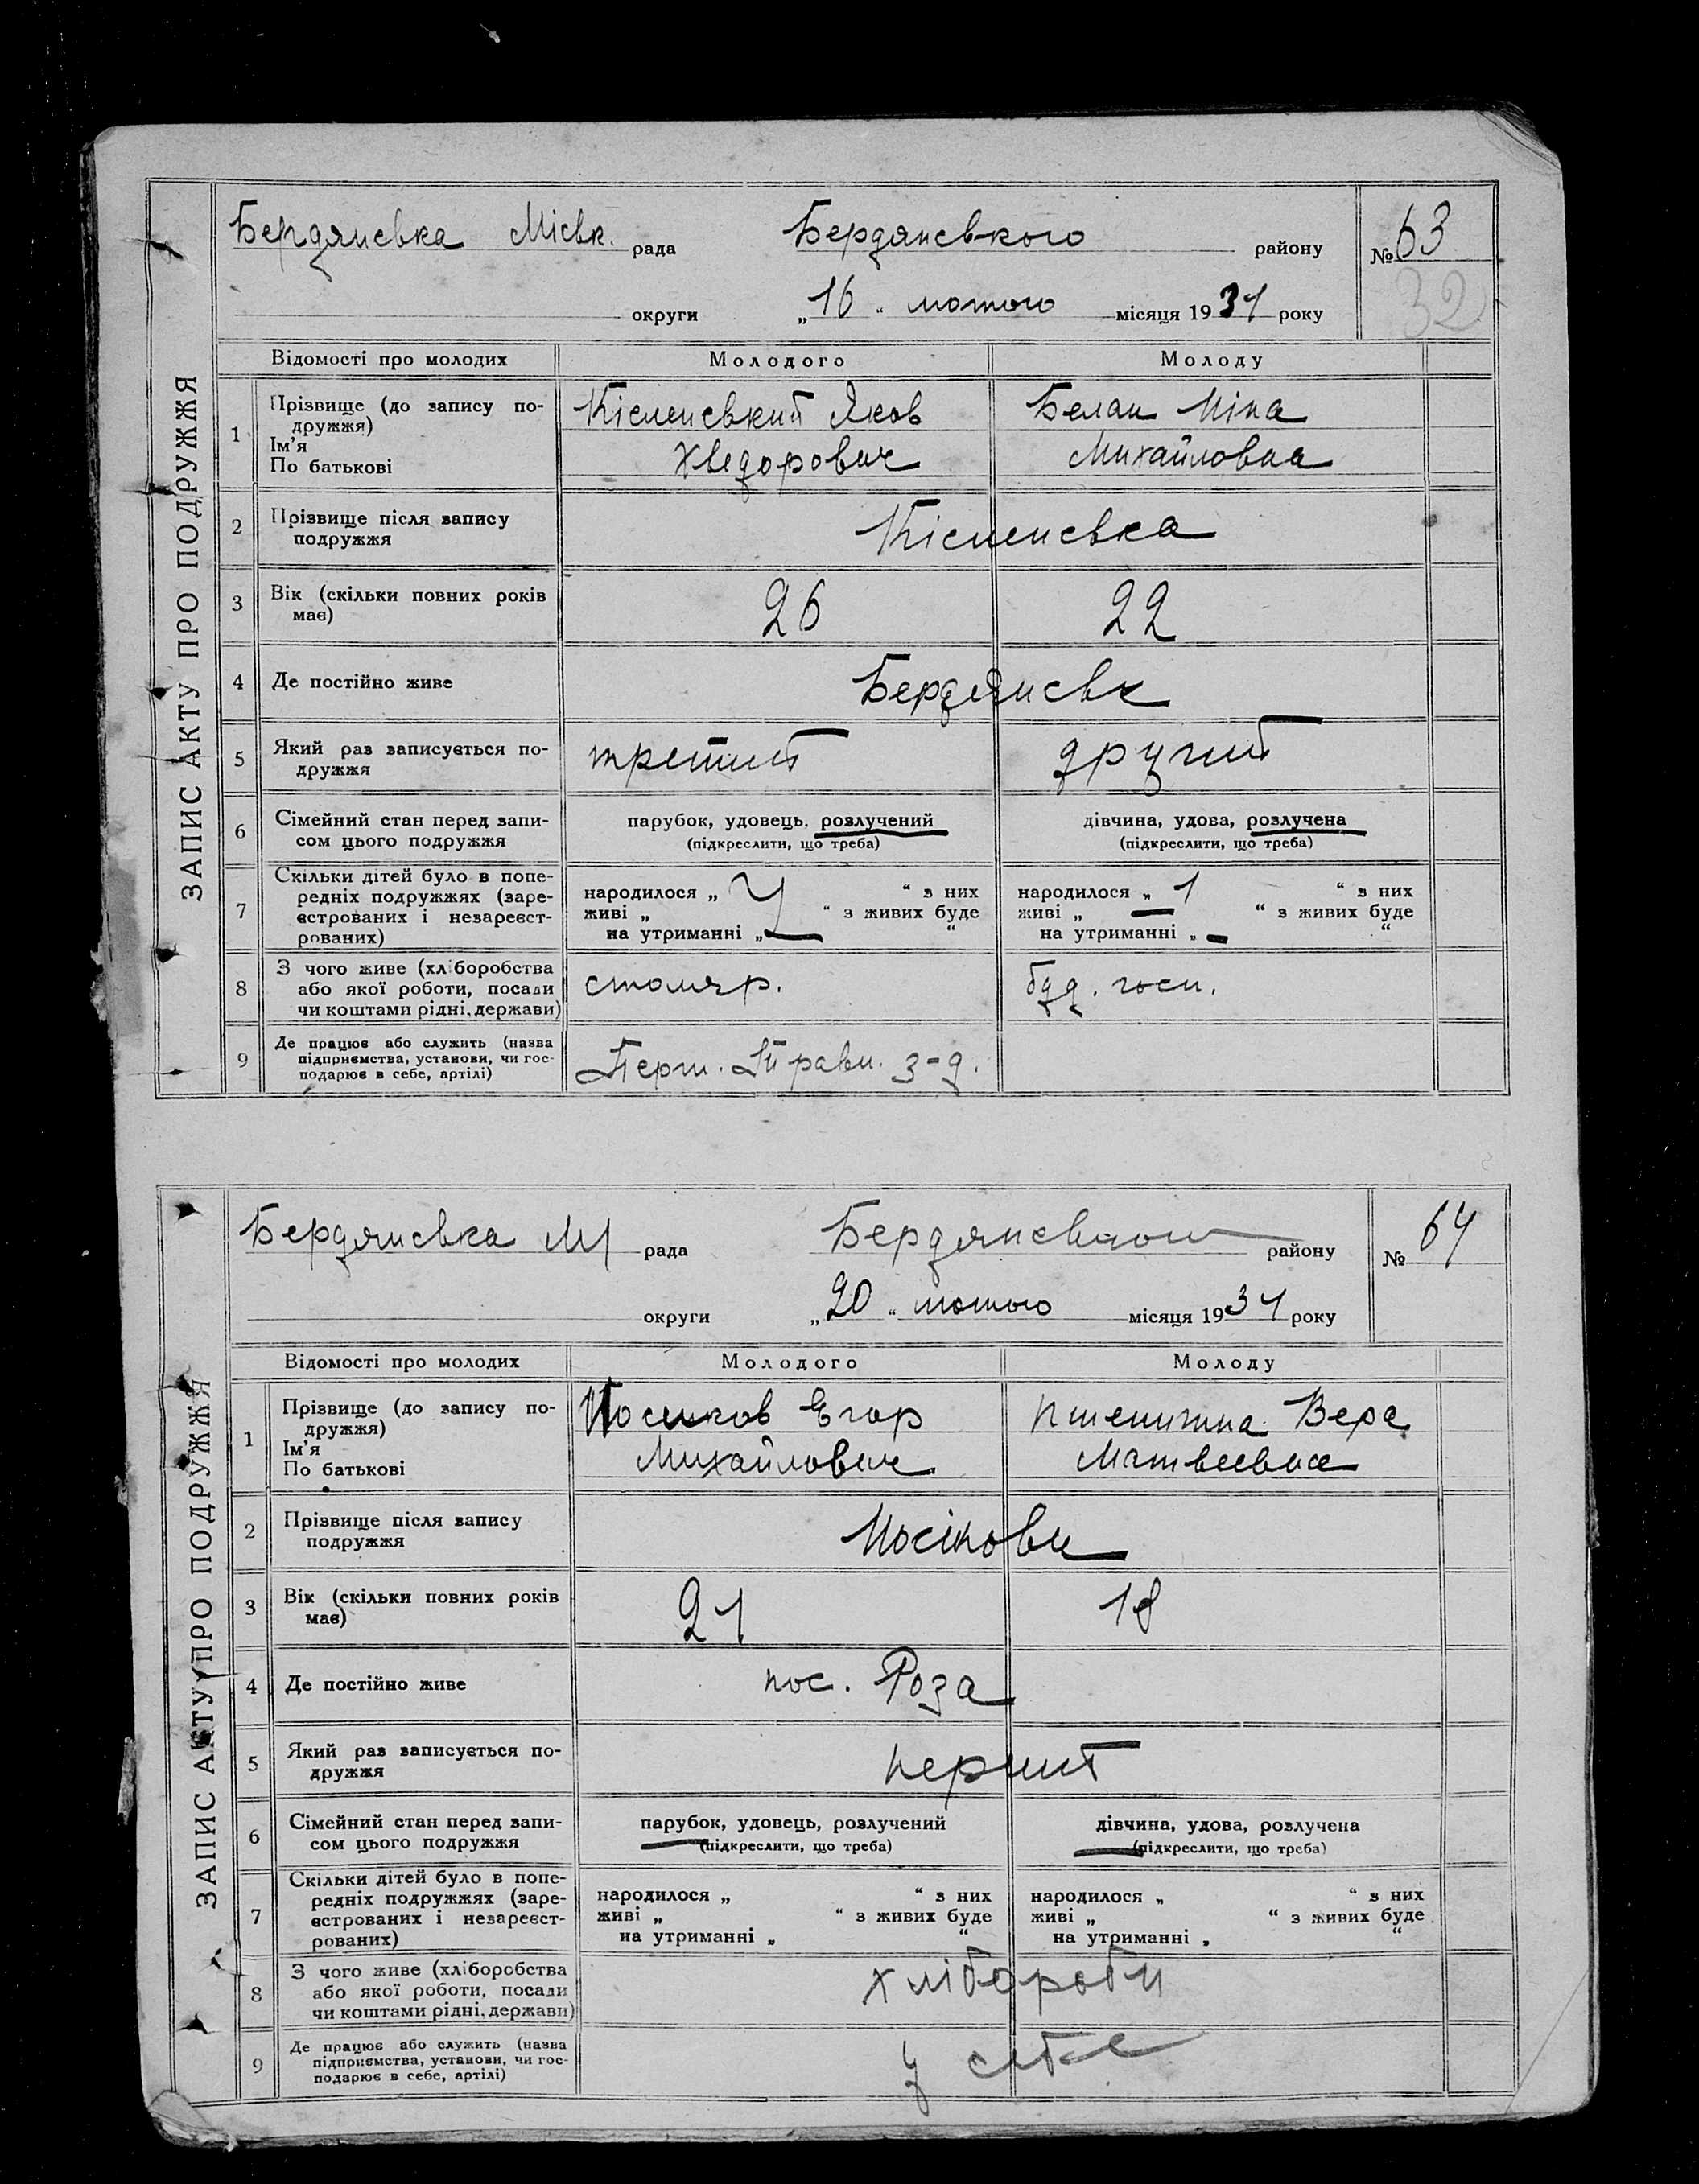 ЗАПИС АКТУ ПРО ПОДРУЖЖЯ
Бердянська Міськ. рада Бердянського району № 63
32
округи „16“ лютого місяця 1931 року
Відомості про молодих Молодого Молоду
1 Прізвище (до запису по-
дружжя)
Ім'я
По батькові
Кісленський Яков
Хведорович
Белан Міна
Михайловна
2 Прізвище після запису
подружжя
Кісленська
3 Вік (скільки повних років
має)
26 22
4 Де постійно живе Бердянськ
5 Який раз записується по-
дружжя
третий другий
6 Сімейний стан перед запи-
сом цього подружжя
парубок, удовець, розлучений
(підкреслити, що треба)
дівчина, удова, розлучена
(підкреслити, що треба)
7 Скільки дітей було в попе-
редніх подружжях (заре-
єстрованих і незареєст-
рованих)
народилося „ “ з них
живі „ “ з живих буде
на утриманні „ — “
народилося „ 1 “ з них
живі „ — “ з живих буде
на утриманні „ — “
8 З чого живе (хліборобства
або якої роботи, посади
чи коштами рідні, держави)
столяр. буд. госп.
9 Де працює або служить (назва
підприємства, установи, чи гос-
подарює в себе, артілі)
Перш. Травн. з-д.
ЗАПИС АКТУ ПРО ПОДРУЖЖЯ
Бердянська М рада Бердянського району № 64
округи „20“ лютого місяця 1931 року
Відомості про молодих Молодого Молоду
1 Прізвище (до запису по-
дружжя)
Ім'я
По батькові
Носиков Егор
Михайлович
Пшенишна Вера
Матвеевна
2 Прізвище після запису
подружжя
Носікови
3 Вік (скільки повних років
має)
21 18
4 Де постійно живе пос. Роза
5 Який раз записується по-
дружжя
перший
6 Сімейний стан перед запи-
сом цього подружжя
парубок, удовець, розлучений
(підкреслити, що треба)
дівчина, удова, розлучена
(підкреслити, що треба)
7 Скільки дітей було в попе-
редніх подружжях (заре-
єстрованих і незареєст-
рованих)
народилося „ “ з них
живі „ “ з живих буде
на утриманні „ “
народилося „ “ з них
живі „ “ з живих буде
на утриманні „ “
8 З чого живе (хліборобства
або якої роботи, посади
чи коштами рідні, держави)
хлібороби
9 Де працює або служить (назва
підприємства, установи, чи гос-
подарює в себе, артілі)
у себе